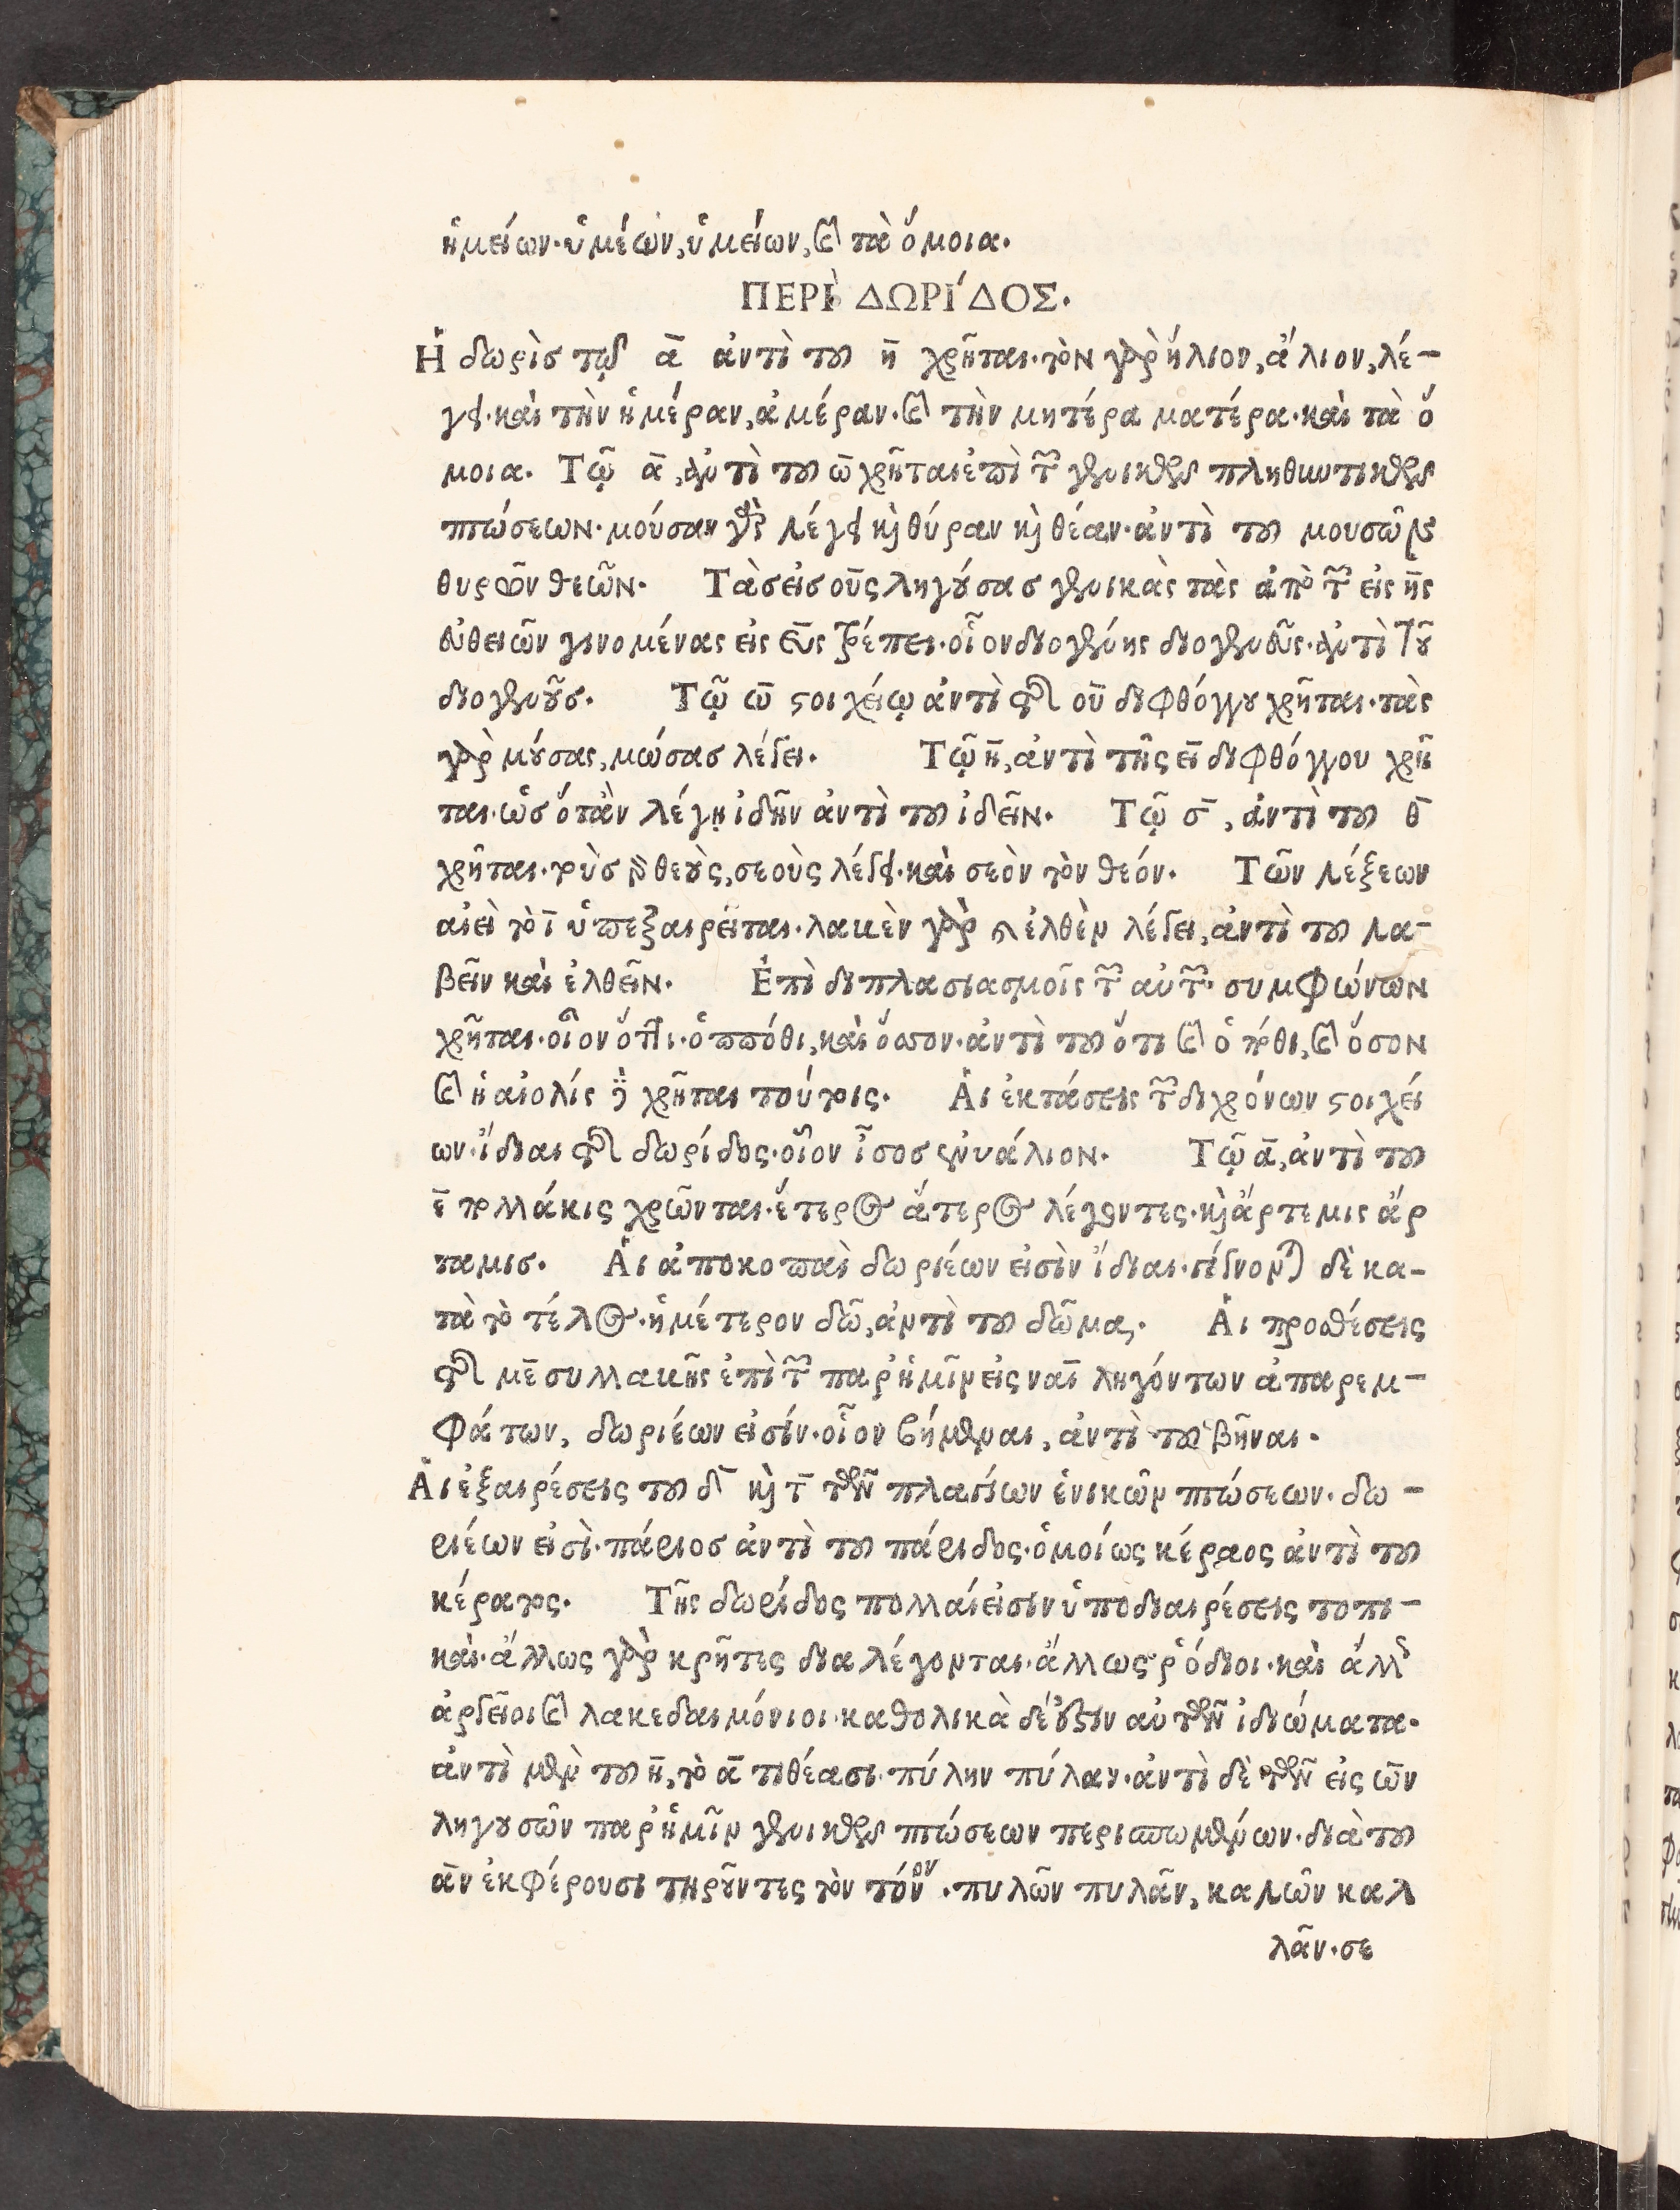 ἡμείων·ὑμέων, ὑμείων, καὶ τὰ ὅμοια.
ΠΕΡῚ ΔΩΡΊΔΟΣ.
Ἡ δωρὶσ τῷ ᾱ ἀντὶ τοῦ η̄ χρῆται·τὸν γὰρ ἥλιον, ἅλιον, λέ-
γει·καὶ τὴν ἡμέραν, ἁμέραν·καὶ τὴν μητέρα ματέρα·καὶ τὰ ὅ
μοια. Τῷ ᾱ, ἀντὶ τοῦ ω̄ χρῆται ἐπὶ τῶν γενικῶν πληθυντικῶν
πτώσεων·μούσαν γὰρ λέγει καὶ θύραν καὶ θέαν·ἀντὶ τοῦ μουσῶν
θυρῶν θεῶν. Τὰσ εἰσ οῡς ληγούσασ γενικὰς τὰς ἀπὸ τῶν εἰς η̄ς
εὐθειῶν γινομένας εἰς εῡς τρέπει·οἷον διογένης διογενεῦς·ἀντὶ τοῦ
διογενοῦσ. Τῷ ω̄ στοιχείῳ ἀντὶ τῆς οῡ διφθόγγου χρῆται·τὰς
γὰρ μούσας, μώσασ λέγει. Τῷ η̄, ἀντὶ τῆς εῑ διφθόγγου χρῆ
ται·ὡσ ὅταν λέγῃ ἰδῆν ἀντὶ τοῦ ἰδεῖν. Τῷ σ̄, ἀντὶ τοῦ θ̄
χρῆται·τοὺσ γὰρ θεοὺς, σεοὺς λέγει·καὶ σεὸν τὸν θεόν. Τῶν λέξεων
αἰεὶ τὸ ῑ ὑπεξαιρεῖται·λακὲν γὰρ καὶ ἐλθὲν λέγει, ἀντὶ τοῦ λα-
βεῖν καὶ ἐλθεῖν. Ἐπὶ διπλασιασμοῖς τῶν αὐτῶν συμφώνων
χρῆται·οἷον ὅττι·ὁππόθι, καὶ ὅσσον·ἀντὶ τοῦ ὅτι καὶ ὁπόθι, καὶ ὅσον
καὶ ἡ αἰολίς δὲ χρῆται τούτοις. Ἁι ἐκτάσεις τῶν διχρόνων στοιχεί
ων·ἴδιαι τῆς δωρίδος·οἷον ἶσοσ ἐνυάλιον. Τῷ ᾱ, ἀντὶ τοῦ
ε̄ πολλάκις χρῶνται·ἕτερος ἅτερος λέγοντες·καὶ ἄρτεμις ἄρ
ταμισ. Ἁι ἀποκοπαὶ δωριέων εἰσὶν ἴδιαι·γίγνονται δὲ κα-
τὰ τὸ τέλος·ἡμέτερον δῶ, ἀντὶ τοῦ δῶμα,. Ἁι προσθέσεις
τῆς με̄ συλλαβῆς ἐπὶ τῶν παρ' ἡμῖν εἰς ναῑ ληγόντων ἀπαρεμ-
φάτων, δωριέων εἰσίν·οἷον βήμεναι, ἀντὶ τοῦ βῆναι.
Ἁι ἐξαιρέσεις τοῦ δ̄ καὶ τ̄ τῶν πλαγίων ἑνικῶν πτώσεων·δω-
ριέων εἰσὶ·πάριοσ ἀντὶ τοῦ πάριδος·ὁμοίως κέραος ἀντὶ τοῦ
κέρατος. Τῆς δωρίδος πολλαί εἰσιν ὑποδιαιρέσεις τοπι-
καὶ·ἄλλως γὰρ κρῆτες διαλέγονται·ἄλλως ῥόδιοι·καὶ ἄλλως
ἀργεῖοι καὶ λακεδαιμόνιοι·καθολικὰ δέ ἐστιν αὐτῶν ἰδιώματα·
ἀντὶ μὲν τοῦ η̄, τὸ ᾱ τιθέασι·πύλην πύλαν·ἀντὶ δὲ τῶν εἰς ω̄ν
ληγουσῶν παρ' ἡμῖν γενικῶν πτώσεων περισπωμένων·διὰ τοῦ
ᾱν ἐκφέρουσι τηροῦντες τὸν τόνον·πυλῶν πυλᾶν, καλῶν καλ
λᾶν·σε